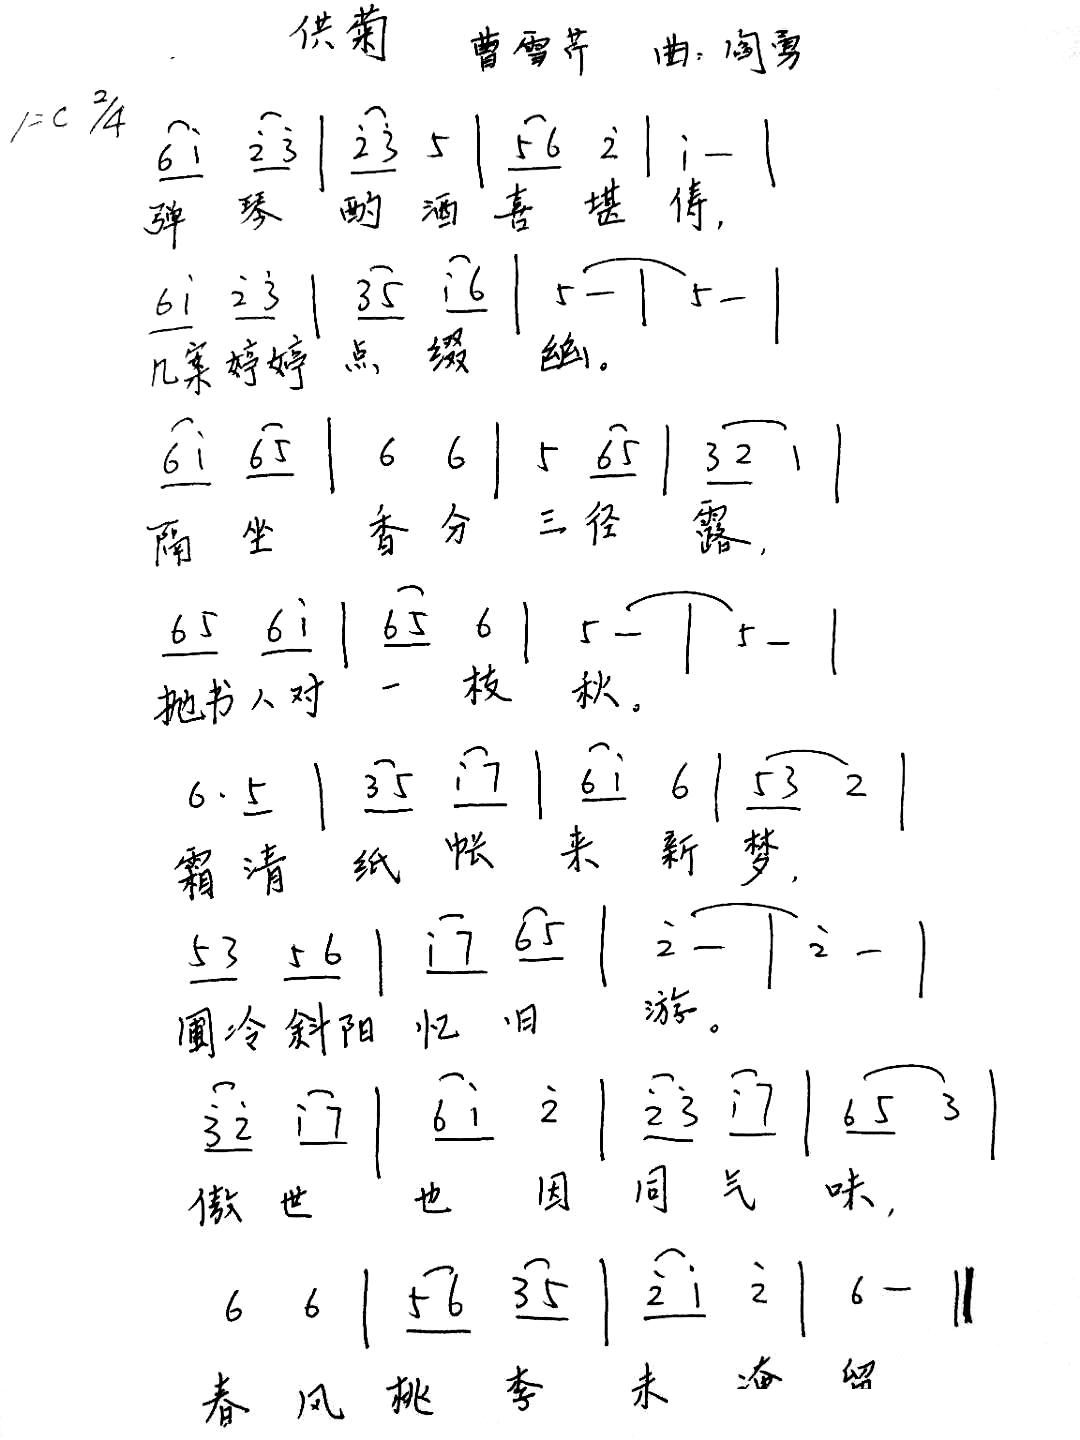 供菊 曹雪芹 曲:阎勇
1=C 2/4
6i 2̇3̇ | 2̇3̇ 5 | 56 2̇ | i — |
弹琴酌酒喜堪俦,
6i 2̇3̇ | 35 i6 | 5 — | 5 — |
几案婷婷点缀幽。
6i 65 | 6 6 | 5 65 | 32 1 |
隔坐香分三径露,
65 6i | 65 6 | 5 — | 5 — |
抛书人对一枝秋。
6· 5 | 35 i7 | 6i 6 | 53 2 |
霜清纸帐来新梦,
53 56 | i7 65 | 2̇ — | 2̇ — |
圃冷斜阳忆旧游。
3̇2̇ i7 | 6i 2̇ | 2̇3̇ i7 | 65 3 |
傲世也因同气味,
6 6 | 56 35 | 2̇i 2̇ | 6 — ‖
春风桃李未淹留